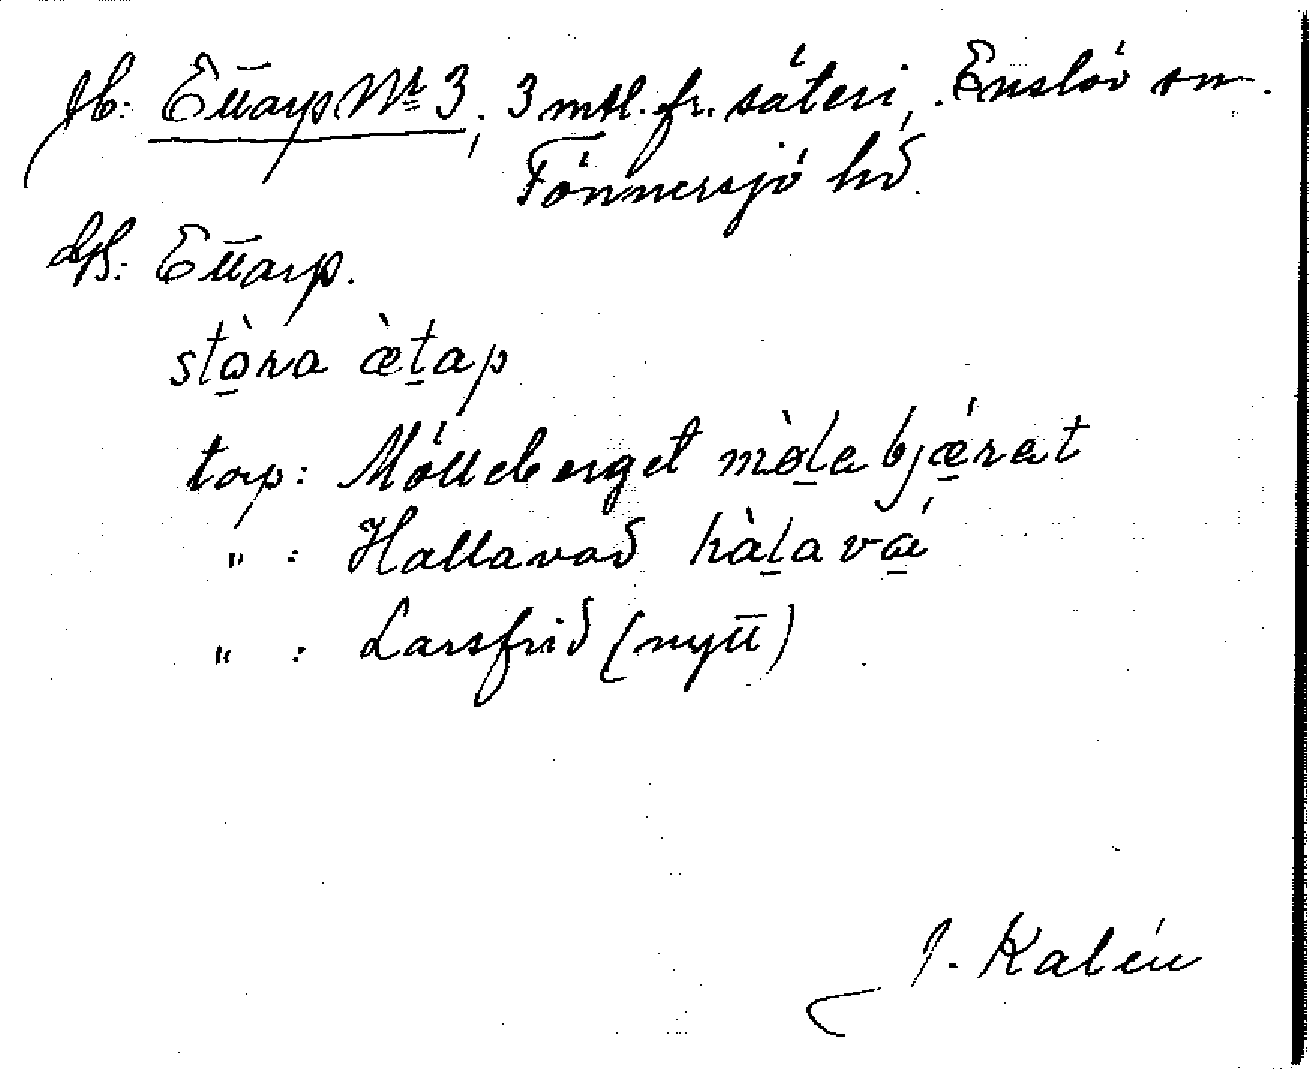 Jb: Ettarp Nr 3, 3 mtl. fr. säteri, Enslöv sn.
Tönnersjö hd.
Uttarp.
stò̱ra æ̀ṯap
torp: Mölleberget mø̱̀ḻa bjǽ̱rat
" : Hallavad hàḻavá̱
" : Larsfrid (nytt)
J. Kalén